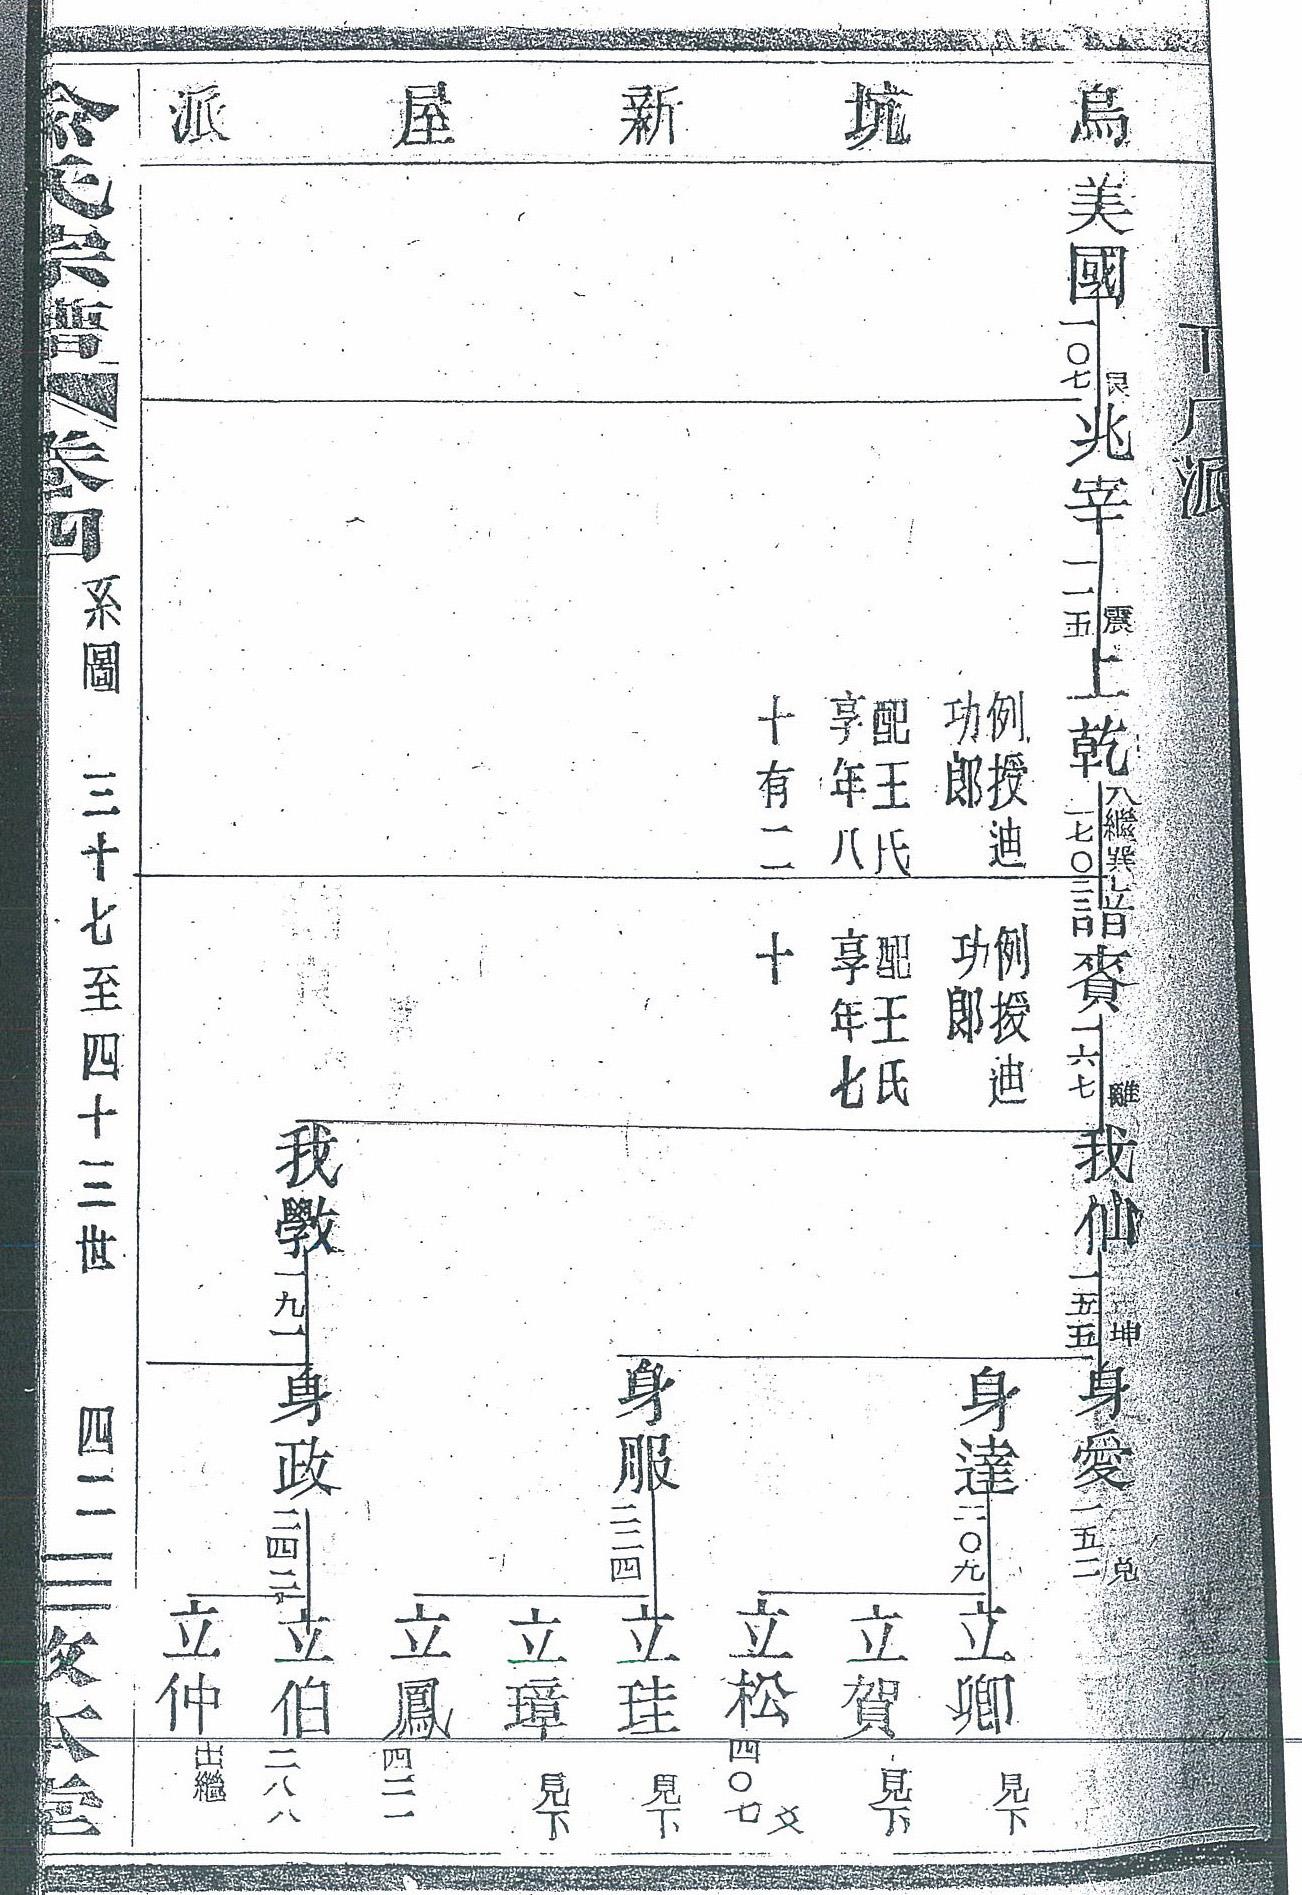 烏坑新屋派
派
美國
一〇七 艮
兆宰
一一五 震
上乾
例授迪
功郎
配王氏
享年八
十有二
譜賚
一六七 離
例授迪
功郎
配王氏
享年七
十
我仙
一五五 坤
我斆
一九一
身愛
一五二 兌
身達
二〇九
身服
二二四
身政
二四二
立卿
見下
立賀
見下
立松
四〇七 爻
立珪
見下
立璋
見下
立鳳
四二一
立伯
二八八
立仲
出繼
卷四
系圖
三十七至四十三世
四二